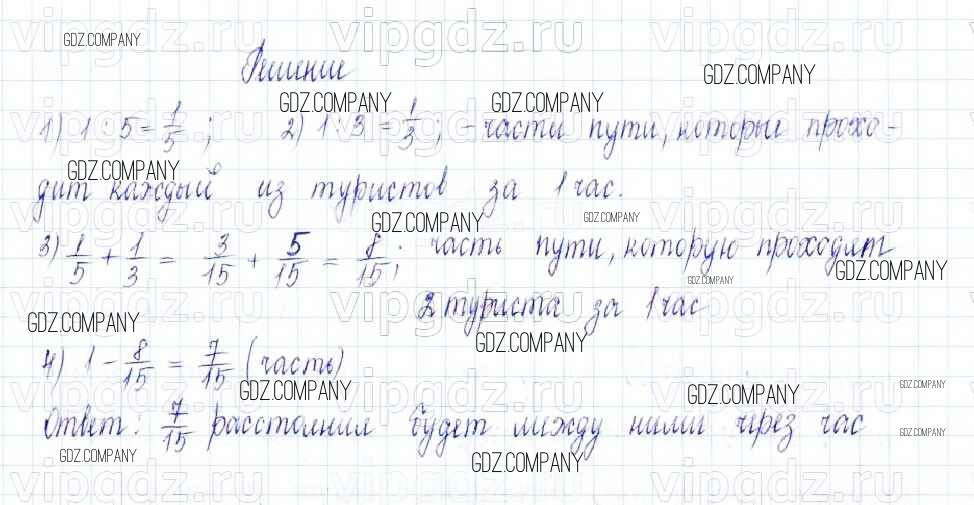 Решение
1) 1 : 5 = 1/5 ; 2) 1 : 3 = 1/3 ; - части пути, которые прохо-
дит каждый из туристов за 1 час.
3) 1/5 + 1/3 = 3/15 + 5/15 = 8/15 ; часть пути, которую проходят
2 туриста за 1 час
4) 1 - 8/15 = 7/15 (часть)
Ответ: 7/15 расстояния будет между ними через час
vipgdz.ru
GDZ.COMPANY